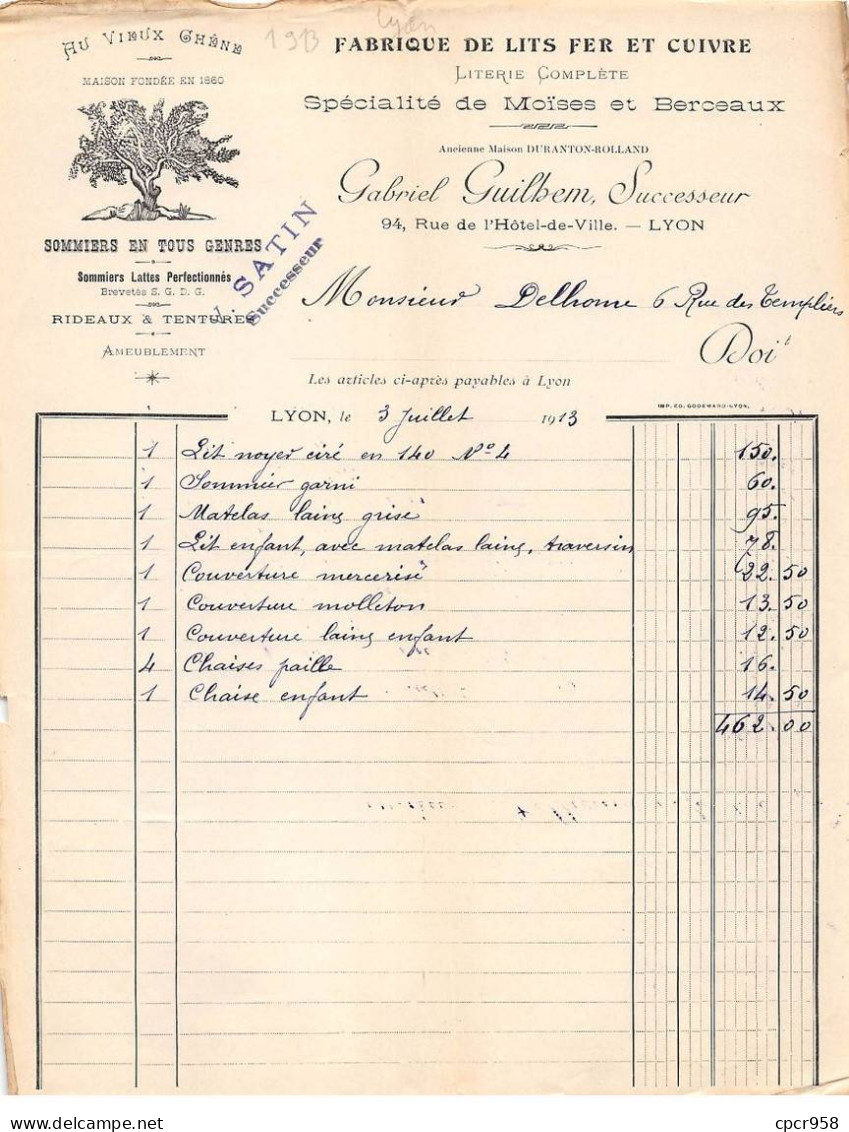 1913 Lyon
AU VIEUX CHÊNE
MAISON FONDÉE EN 1860
SOMMIERS EN TOUS GENRES
Sommiers Lattes Perfectionnés
Brevetés S. G. D. G.
RIDEAUX & TENTURES
AMEUBLEMENT
J. SATIN
Successeur
FABRIQUE DE LITS FER ET CUIVRE
LITERIE COMPLÈTE
Spécialité de Moïses et Berceaux
Ancienne Maison DURANTON-ROLLAND
Gabriel Guilhem, Successeur
94, Rue de l'Hôtel-de-Ville. — LYON
Monsieur Delhome 6 Rue des Templiers
Doit
Les articles ci-après payables à Lyon
IMP. ED. GODEMARD-LYON.
LYON, le 3 Juillet 1913
1 Lit noyer ciré en 140 N° 4 150.
1 Sommier garni 60.
1 Matelas laine grise 95.
1 Lit enfant, avec matelas laine, traversin 78.
1 Couverture mercerisé 22.50
1 Couverture molleton 13.50
1 Couverture laine enfant 12.50
4 Chaises paille 16.
1 Chaise enfant 14.50
462.00
www.delcampe.net
cpcr958